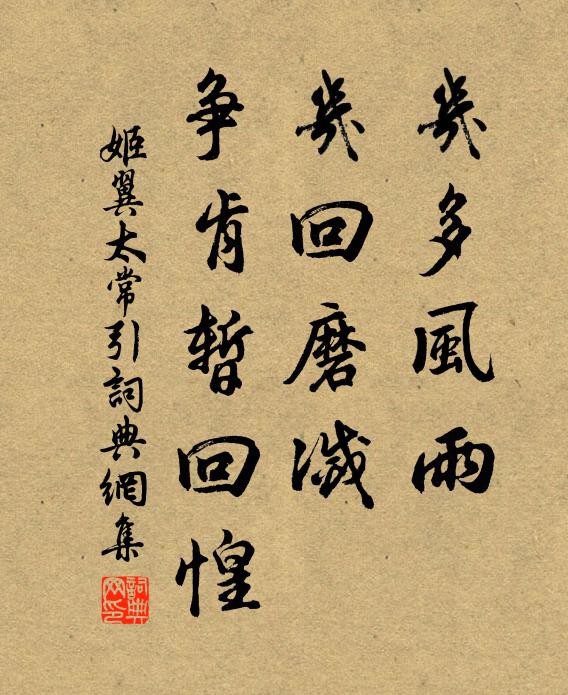 幾多風雨
幾回磨滅
争肯暫回惶
姬翼太常引詞典網集
詞典网印